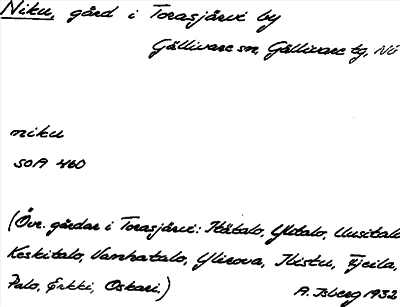 Niku, gård i Torasjärvi by
Gällivare sn, Gällivare tg, Nb
niku
SOA 460
(Övr. gårdar i Torasjärvi: Itätalo, Ylitalo, Uusitalo
Keskitalo, Vanhatalo, Ylirova, Ristu, Eeila,
Palo, Erkki, Oskari.)
A. Isberg 1932